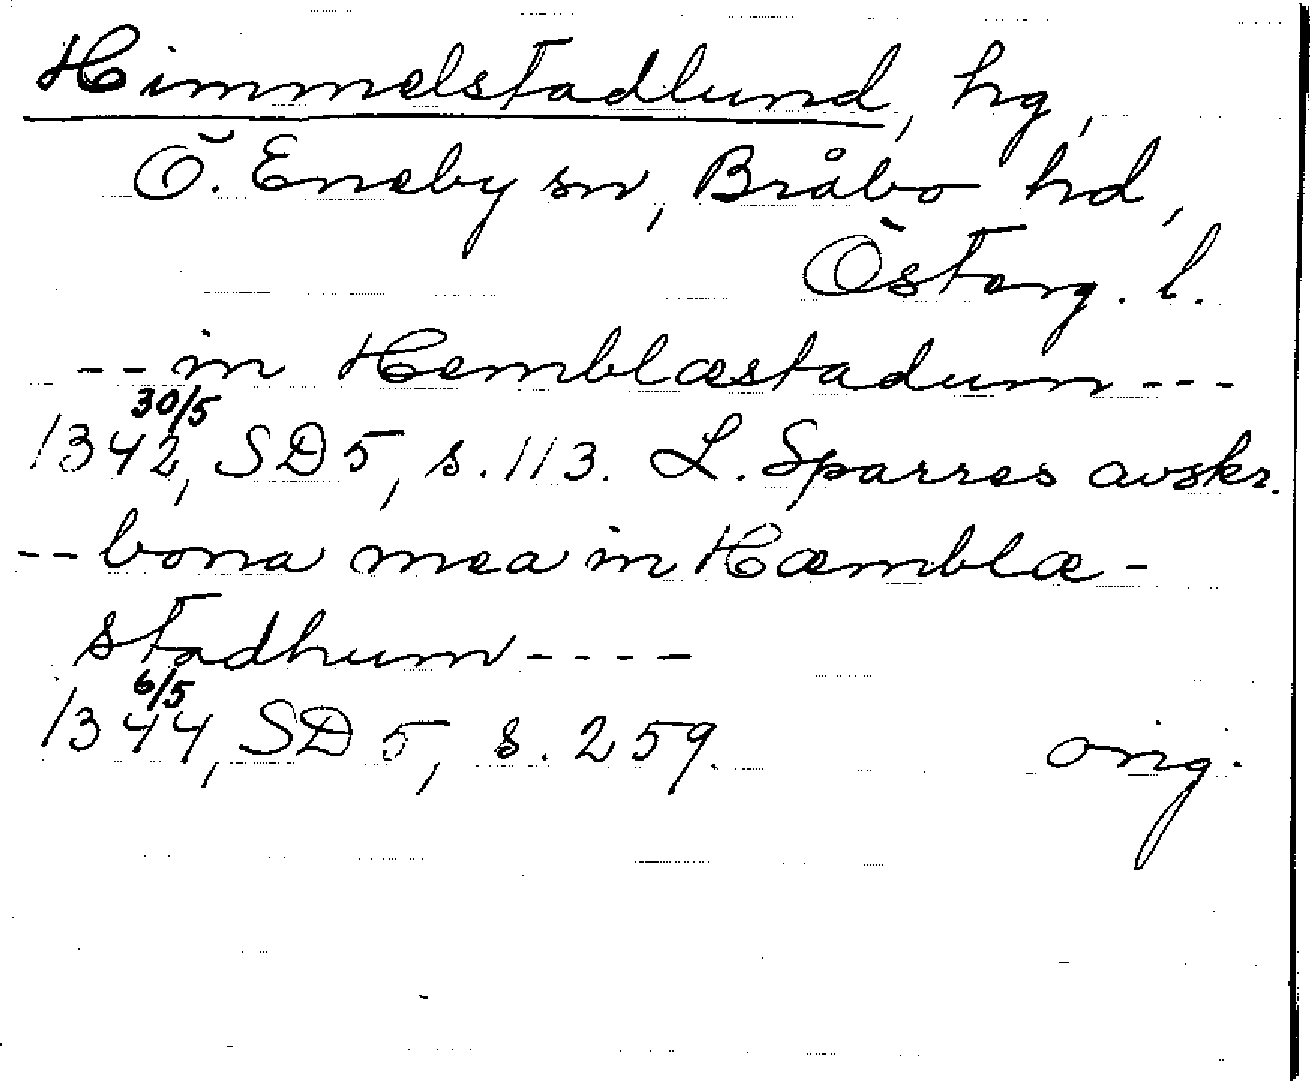 Himmelstadlund, hg,
Ö. Eneby sn, Bråbo hd,
Österg. l.
-- in Hemblæstadum ---
30/5
1342, SD 5, s. 113. L. Sparres avskr.
-- bona mea in Hæmblæ-
stadhum ----
6/5
1344, SD 5, s. 259. orig.